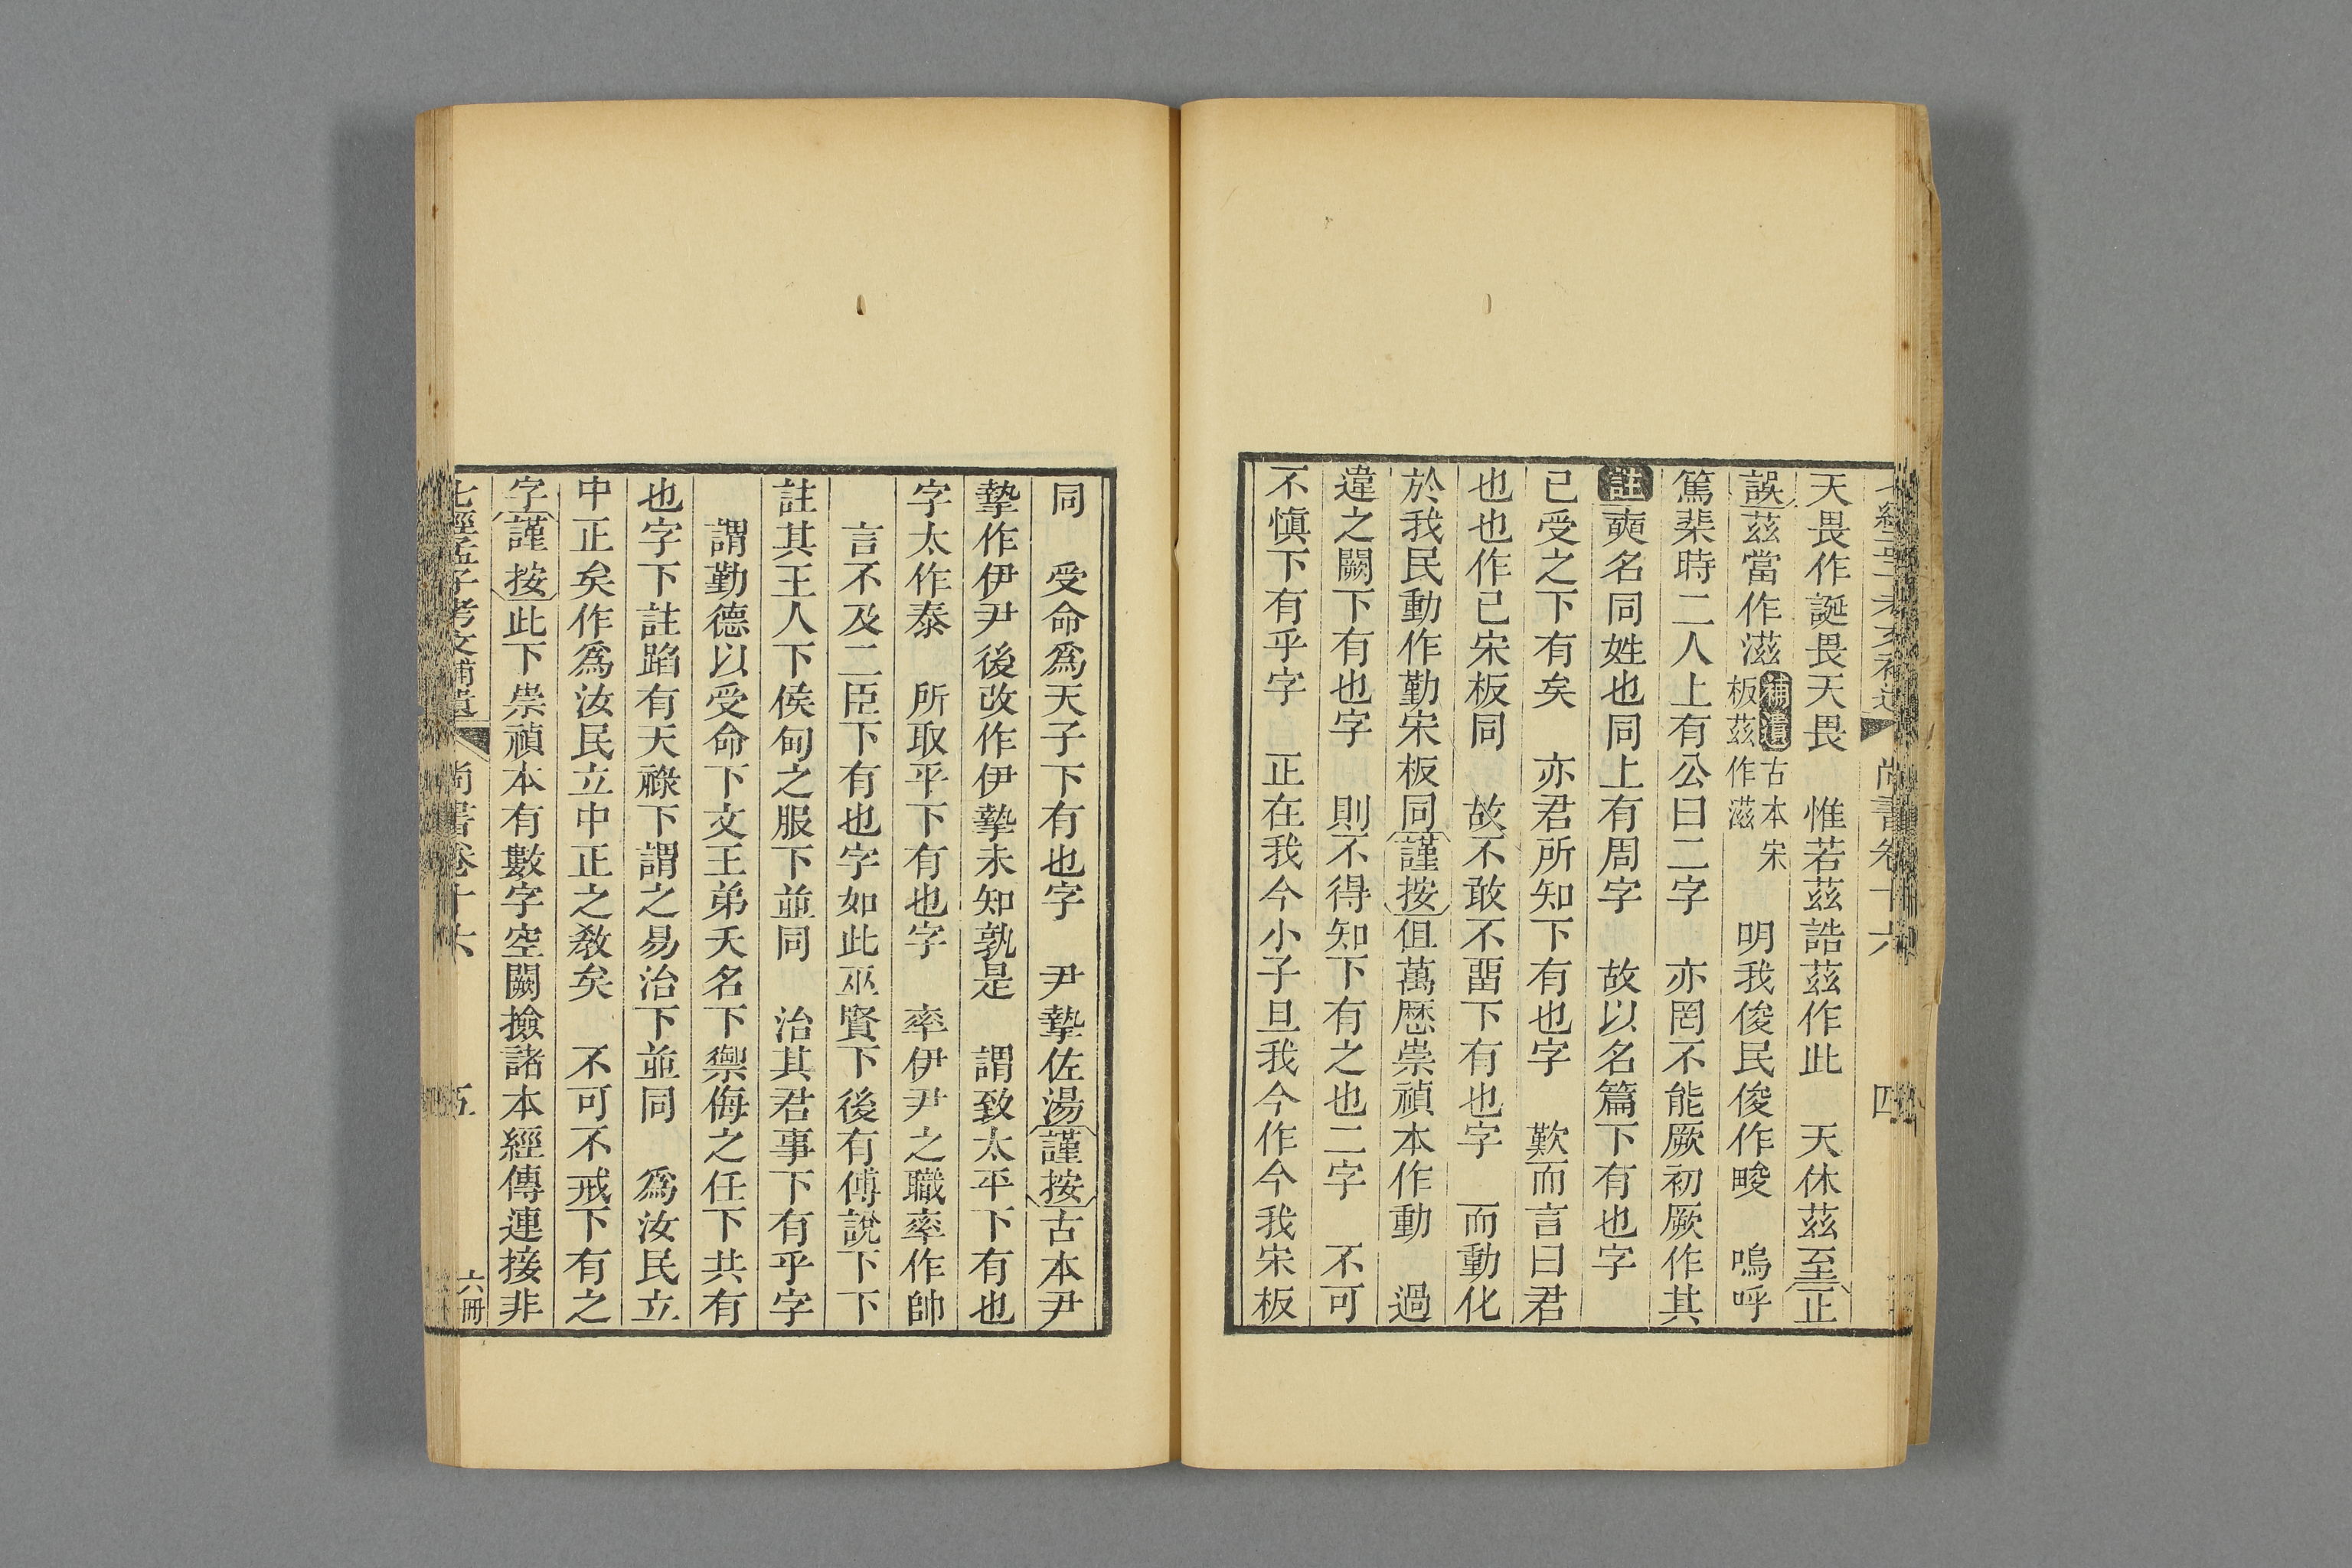 天畏作誕畏天畏　惟若茲誥茲作此　天休茲至正
誤茲當作滋補遺古本宋板茲作滋　明我俊民俊作畯　嗚呼
篤棐時二人上有公曰二字　亦罔不能厥初厥作其
註奭名同姓也同上有周字　故以名篇下有也字
已受之下有矣　亦君所知下有也字　歎而言曰君
也也作已宋板同　故不敢不畱下有也字　而動化
於我民動作勤宋板同謹按但萬歷崇禎本作動　過
違之闕下有也字　則不得知下有之也二字　不可
不慎下有乎字　正在我今小子旦我今作今我宋板
尚書卷十六　四
同　受命爲天子下有也字　尹摯佐湯謹按古本尹
摯作伊尹後改作伊摯未知孰是　謂致太平下有也
字太作泰　所取平下有也字　率伊尹之職率作帥
言不及二臣下有也字如此巫賢下後有傅說下下
註其王人下侯甸之服下並同　治其君事下有乎字
謂勤德以受命下文王弟夭名下禦侮之任下共有
也字下註蹈有天祿下謂之易治下並同　爲汝民立
中正矣作爲汝民立中正之敎矣　不可不戒下有之
字謹按此下崇禎本有數字空闕撿諸本經傳連接非
七經孟子考文補遺　尚書卷十六　五　六冊